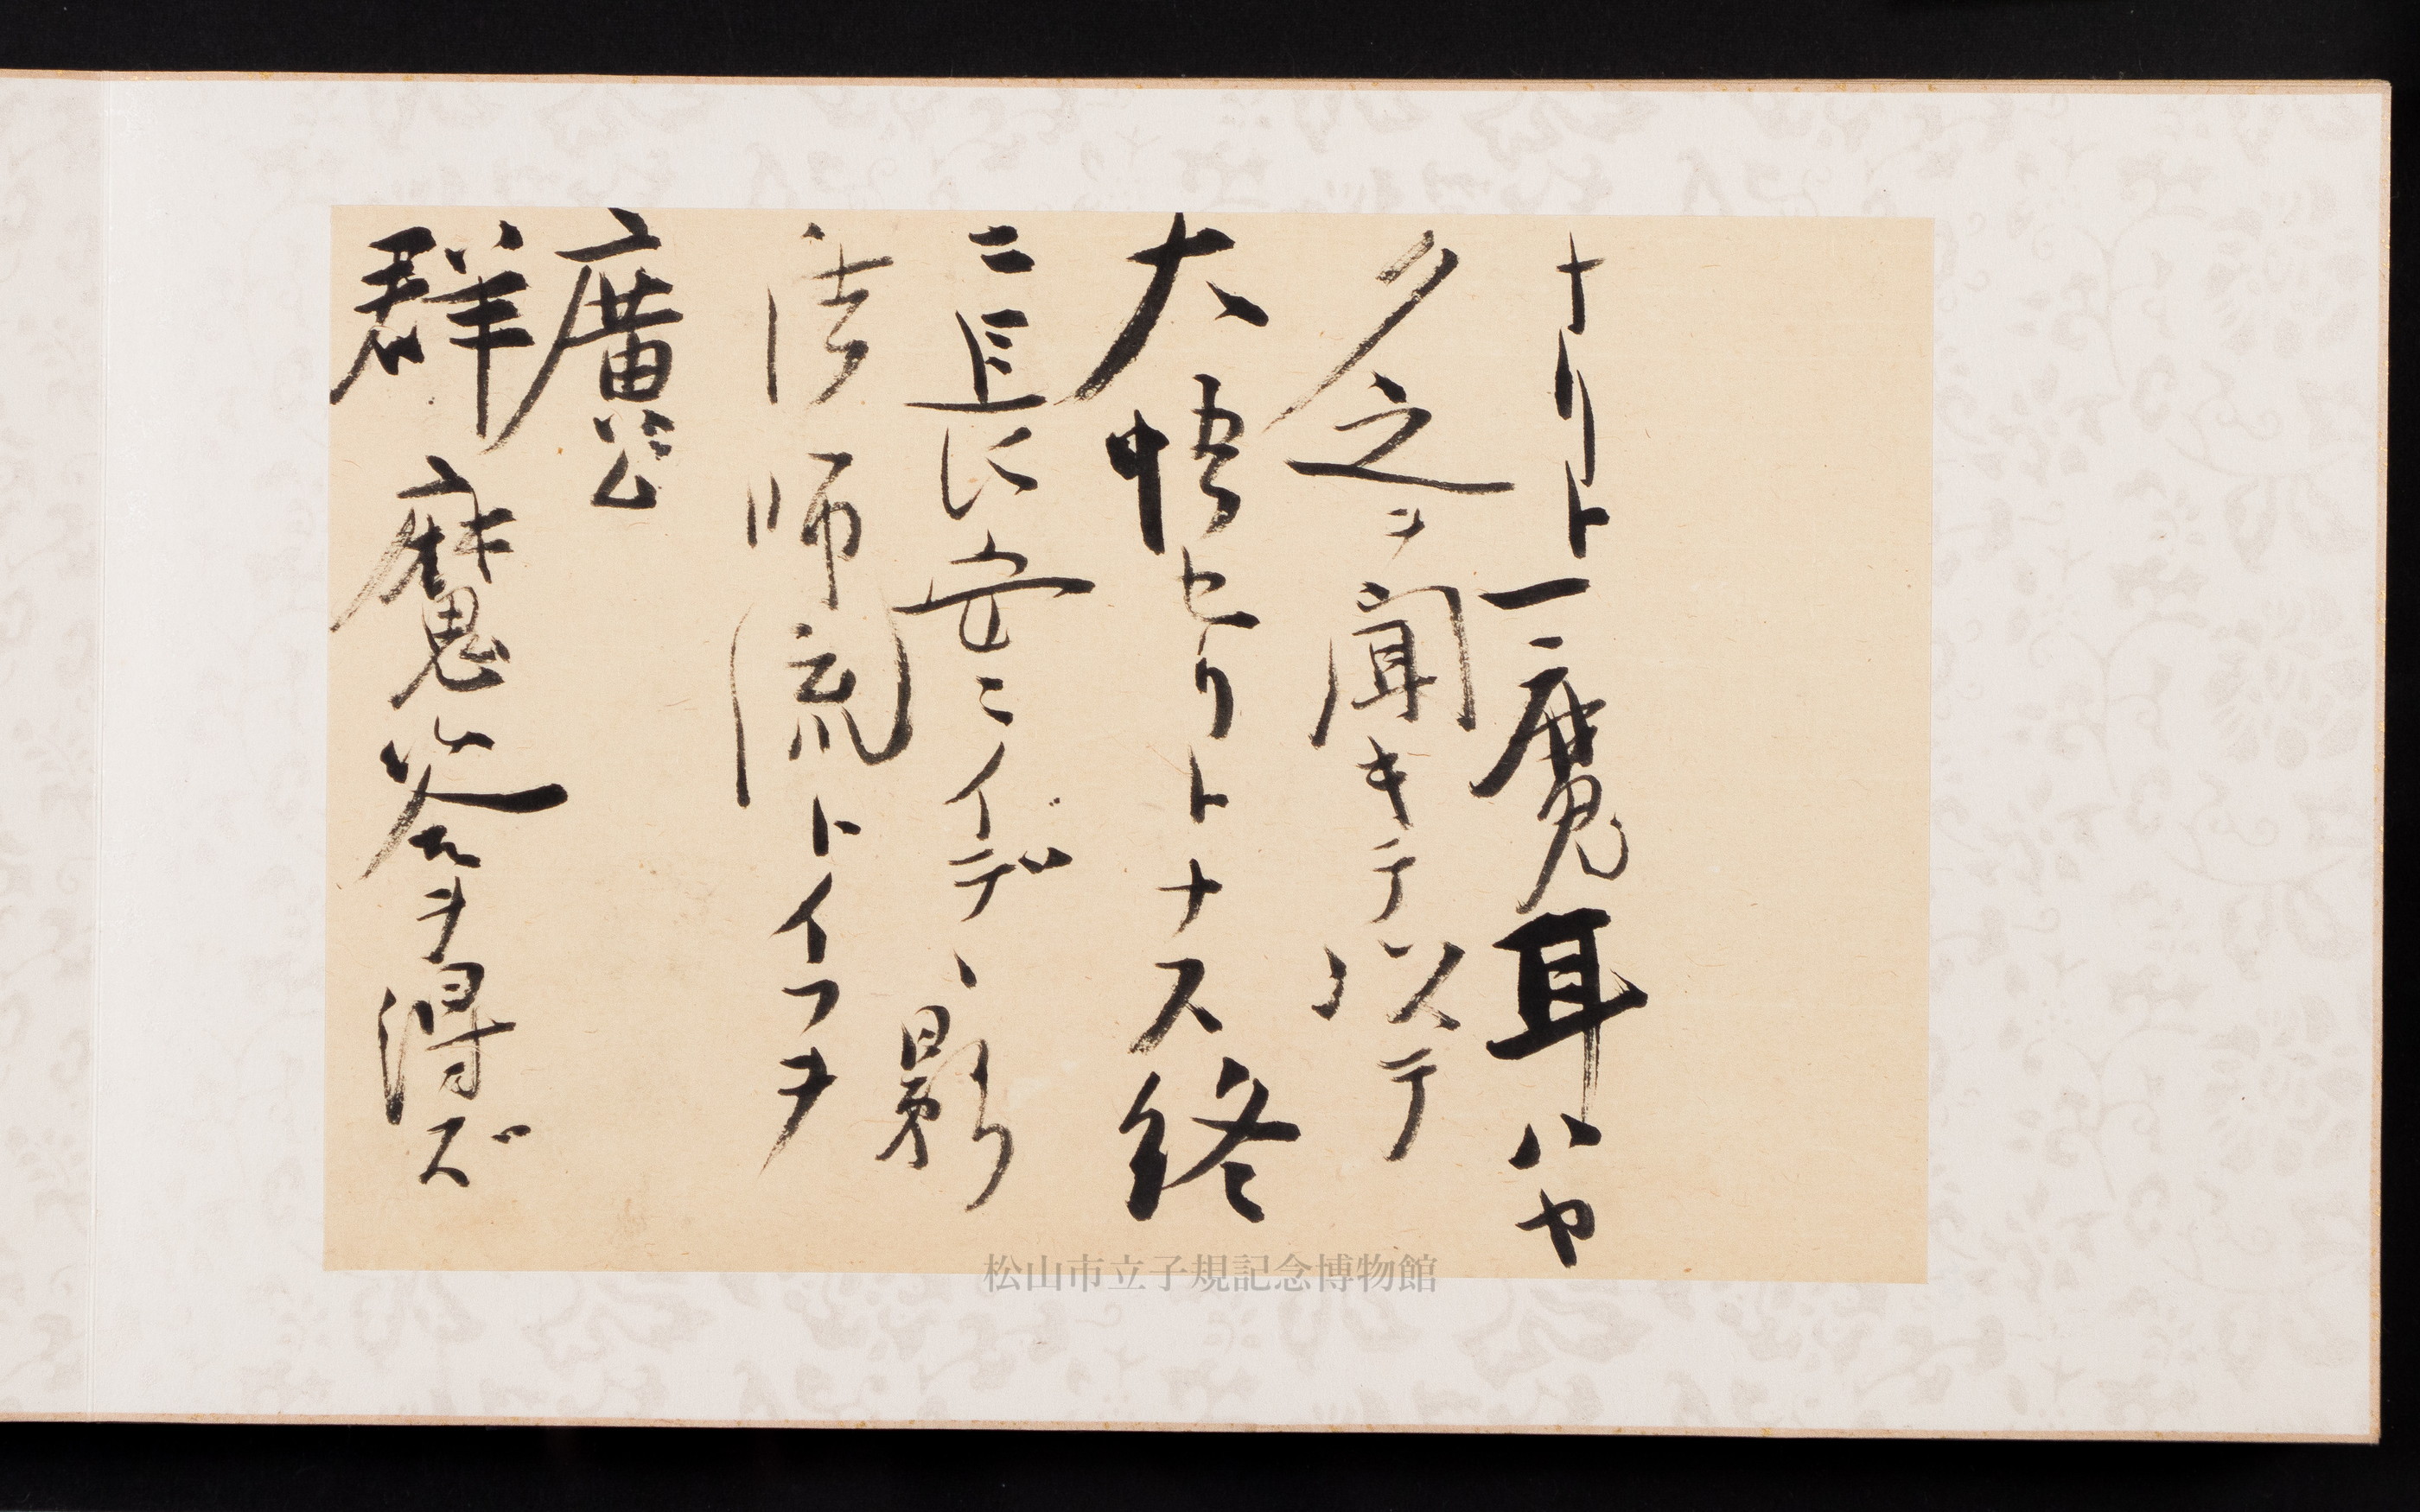 ナリト一魔耳ハヤ
ク之ヲ聞キテ以テ
大悟セリトナス終
ニ長安ニイデ、影
法師流トイフヲ
廣ム
群魔答ヲ得ズ
松山市立子規記念博物館